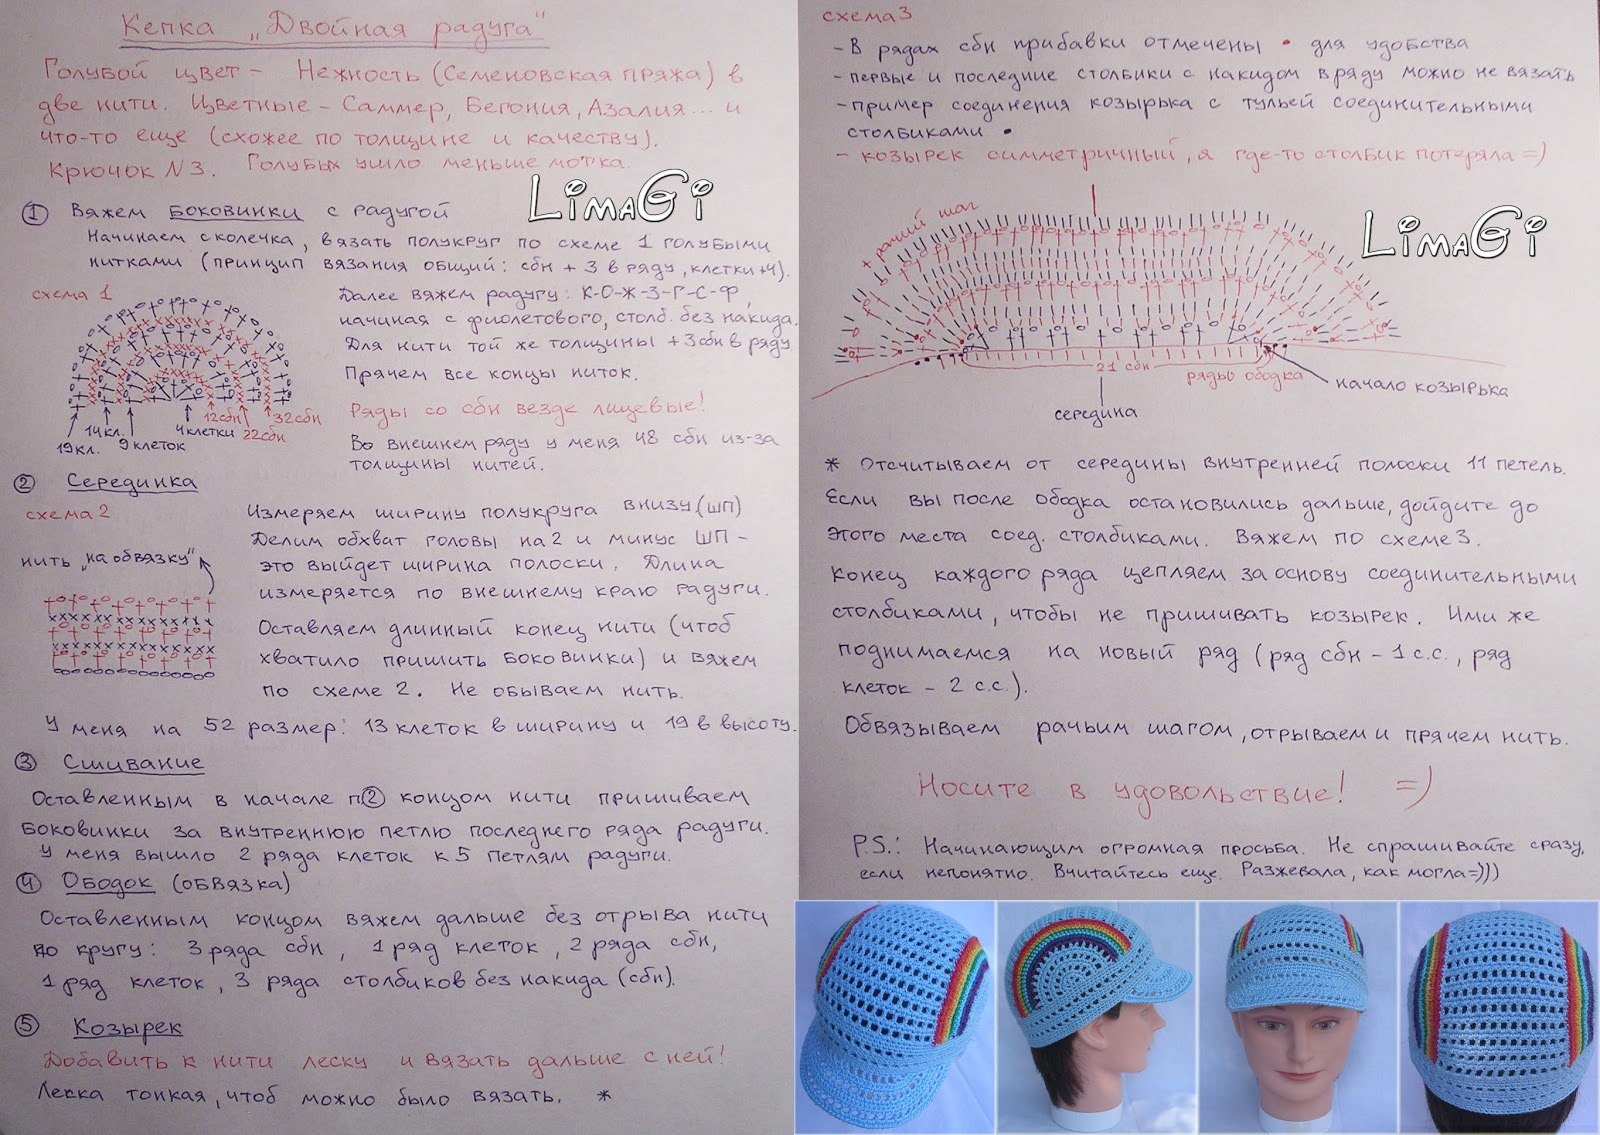 Кепка „Двойная радуга"
Голубой цвет - Нежность (Семеновская пряжа) в
две нити. Цветные - Саммер, Бегония, Азалия... и
что-то еще (схожее по толщине и качеству).
Крючок N3. Голубых ушло меньше мотка.
LimaGi
① Вяжем боковинки с радугой
Начинаем с колечка, вязать полукруг по схеме 1 голубыми
нитками (принцип вязания общий: сбн + 3 в ряду, клетки +4).
схема 1
Далее вяжем радугу: К-О-Ж-З-Г-С-Ф,
начиная с фиолетового, столб. без накида.
Для нити той же толщины +3 сбн в ряду
Прячем все концы ниток.
Ряды со сбн везде лицевые!
Во внешнем ряду у меня 48 сбн из-за
толщины нитей.
19кл.
14кл.
9 клеток
4 клетки
12сбн
22сбн
32сбн
② Серединка
схема 2
нить „на обвязку"
Измеряем ширину полукруга внизу (шп)
Делим обхват головы на 2 и минус ШП -
это выйдет ширина полоски. Длина
измеряется по внешнему краю радуги.
Оставляем длинный конец нити (чтоб
хватило пришить боковинки) и вяжем
по схеме 2. Не обываем нить.
У меня на 52 размер: 13 клеток в ширину и 19 в высоту.
③ Сшивание
Оставленным в начале п② концом нити пришиваем
боковинки за внутреннюю петлю последнего ряда радуги.
У меня вышло 2 ряда клеток к 5 петлям радуги.
④ Ободок (обвязка)
Оставленным концом вяжем дальше без отрыва нити
по кругу: 3 ряда сбн, 1 ряд клеток, 2 ряда сбн,
1 ряд клеток, 3 ряда столбиков без накида (сбн).
⑤ Козырек
Добавить к нити леску и вязать дальше с ней!
Леска тонкая, чтоб можно было вязать. *
схема 3
- В рядах сбн прибавки отмечены • для удобства
- первые и последние столбики с накидом в ряду можно не вязать
- пример соединения козырька с тульей соединительными
столбиками •
- козырек симметричный, я где-то столбик потеряла =)
+ рачий шаг
LimaGi
21 сбн
ряды ободка
начало козырька
середина
* Отсчитываем от середины внутренней полоски 11 петель.
Если вы после ободка остановились дальше, дойдите до
этого места соед. столбиками. Вяжем по схеме 3.
Конец каждого ряда цепляем за основу соединительными
столбиками, чтобы не пришивать козырек. Ими же
поднимаемся на новый ряд (ряд сбн - 1 с.с., ряд
клеток - 2 с.с.).
Обвязываем рачьим шагом, отрываем и прячем нить.
Носите в удовольствие! =)
P.S.: Начинающим огромная просьба. Не спрашивайте сразу,
если непонятно. Вчитайтесь еще. Разжевала, как могла =)))